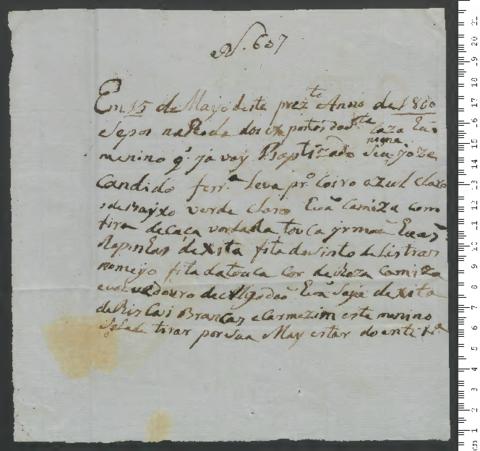 N. 637
Em 15 de Mayo deste prezte Anno de 1860
Sepos na Roda dos imgeitos dasta caza Eu
menino q. ja vay Baptizado Seu joze
Candido ferra Leva pr. Coiro azul claro
o de Bayxo verde claro Eua Camiza com
tira de caca vordada touca irmaa Euas
Ropinhas de xita fita do sinto de Listras
no meyo fita da touca cor de Roza camiza
e de algodaõ Eua Saja de xita
de Riscas Brancas e Carmezim este menino
de tirar por sua May estar doente